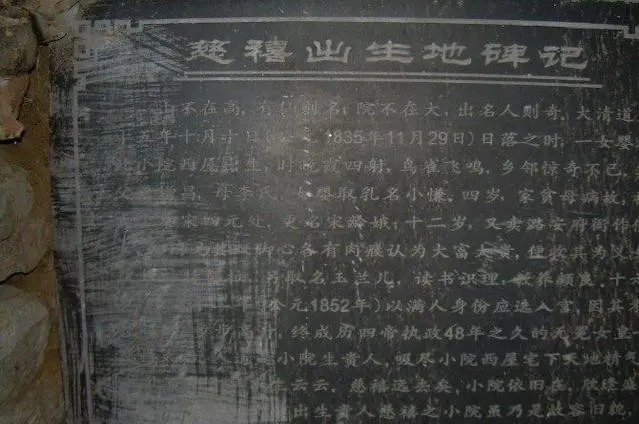 慈禧出生地碑记
山不在高，有仙则名；院不在大，出名人则奇。大清道
十五年十月十日（公元1835年11月29日）日落之时，一女婴
小院西屋出生，时晚霞四射，鸟雀飞鸣，乡邻惊奇不已。
昌，母李氏，女婴取乳名小慊。四岁，家贫母病故，
宋四元处，更名宋龄娥；十二岁，又卖潞安府衙作
脚心各有肉瘊认为大富大贵，便将其为义女
取名玉兰儿，读书识理，
公元1852年）以满人身份应选入宫，因其
步高升，终成历四帝执政48年之久的无冕女皇
小院生贵人，吸尽小院西屋宅下天地精
生云云。慈禧远去矣，小院依旧在，欣逢盛
出生贵人慈禧之小院虽乃是故容旧貌，